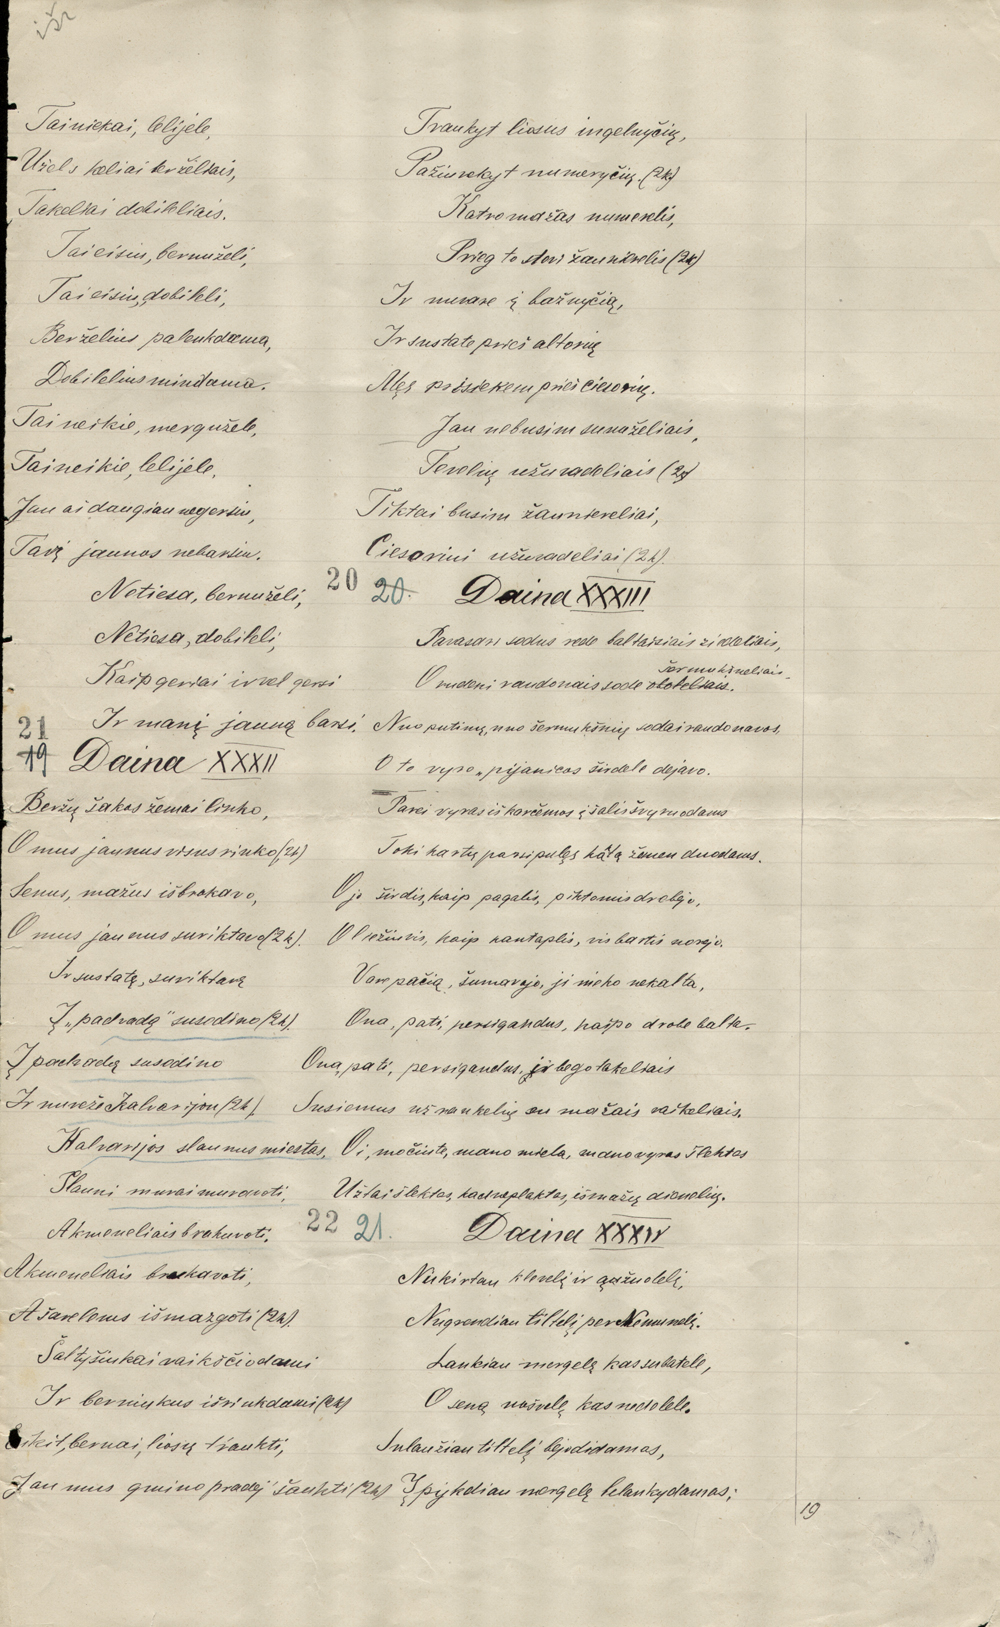 Tai niekai, lelijele,
Užels keliai berželiais,
Takeliai dobileliais.
Tai eisiu, bernuželi,
Tai eisiu, dobileli,
Berželius palenkdama,
Dobilelius mindama.
Tai neikie, mergužele,
Tai neikie, lelijele,
Jau aš daugiau negersiu,
Tavę jaunos nebarsiu.
Netiesa, bernuželi,
Netiesa, dobileli,
Kaip gėriai ir vėl gersi
Ir manę jauną barsi.
21
19 Daina XXXII
Beržų šakos žemai linko,
O mus jaunus visus rinko (2k)
Senus, mažus išbrokavo,
O mus jaunus suriktavo (2k).
Ir sustatę, suriktavę
Į „padvadą" susodino (2k).
Į padvadą susodino
Ir nuvežė Kalvarijon (2k)
Kalvarijos slaunus miestas,
Slauni murai muravoti,
Akmeneliais brukuvoti.
Akmeneliais brukavoti,
Ašarelėms išmazgoti (2k).
Šaltyšiukai vaikščiodami
Ir berniukus išrinkdami (2k)
Eikit, bernai, liosų traukti,
Jau mus gmino pradėj' šaukti (2k)
Traukyt liosus ingelnyčią,
Pažiurekyt numeryčią. (2k)
Katro mažas numerelis,
Prieg to stovi žaunierelis (2k)
Ir nuvarė į bažnyčią,
Ir sustatė prieš altorių
Męs prisiekėm prieš ciesorių.
Jau nebusim sunaželiais,
Tėvelių užuvadėliais (2k)
Tiktai busim žauniereliai,
Ciesoriui užuvadeliai (2k).
20 20. Daina XXXIII
Pavasari sodus rėdė baltaisiais žiedeliais,
šermukšneliais.
O rudeni raudonais sodė obolėliais.
Nuo putinų, nuo šermukšnių sodai raudonavos.
O to vyro, pijanicos širdelė dėjavo.
Parėj vyras iš karčemos į šalis švyruodams
Tokį kartų parsipulęs kaltą žemėn duodams.
O jo širdis, kaip pagalis, piktumis drebėjo,
O liežiuvis, kaip kantaplis, vis bartis norėjo.
Varė pačią, šumavojo, ji nieko nekalta,
Ona, pati, persigandus, kaipo drobė balta.
Ona, pati, persigandus, jį bėgo takeliais
Susiėmus už rankelių su mažais vaikeliais.
Oi, močiute, mano miela, mano vyras šlektas
Už tai šlektas, kad neplaktas, iš mažų dienelių.
22 21. Daina XXXIV
Nukirtau klevelį ir ąžuolelį,
Nugrendžiau tiltelį per Nemunelį.
Lankiau mergelę kas subatelę,
O seną našvelę kas nedelelę.
Sulaužiau tiltelį bejodidamas,
Įpykdžiau mergelę belankydamas;
19